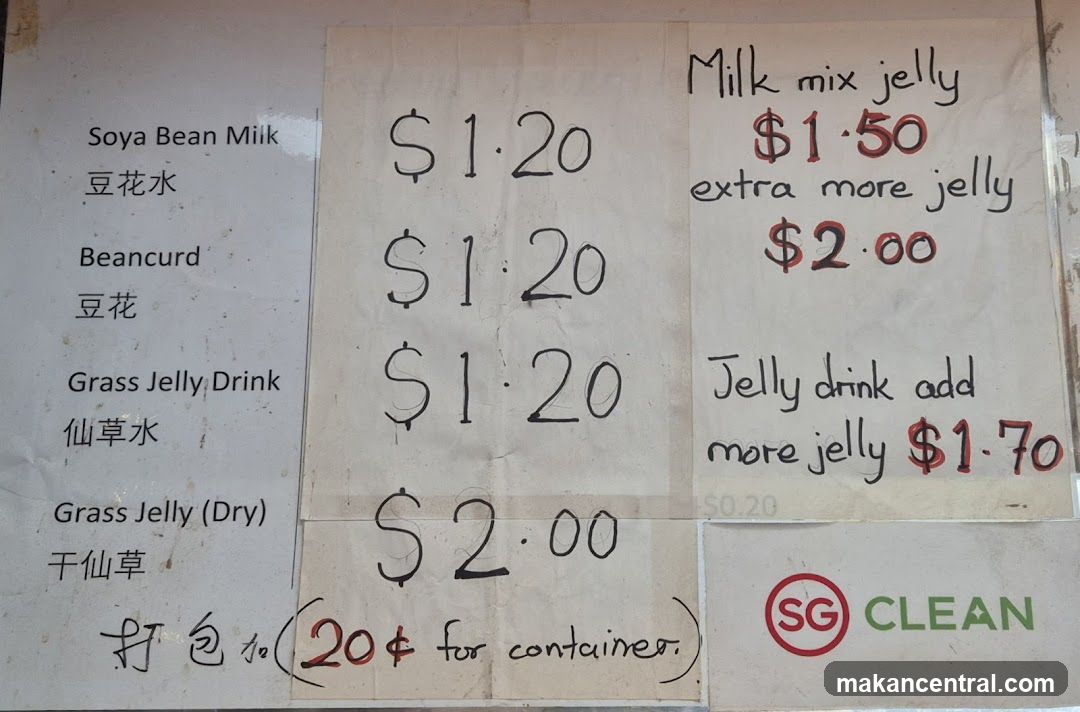 Soya Bean Milk
豆花水
$1.20
Beancurd
豆花
$1.20
Grass Jelly Drink
仙草水
$1.20
Grass Jelly (Dry)
干仙草
$2.00
打包加(20¢ for container.)
Milk mix jelly
$1.50
extra more jelly
$2.00
Jelly drink add
more jelly $1.70
+$0.20
SG CLEAN
makancentral.com